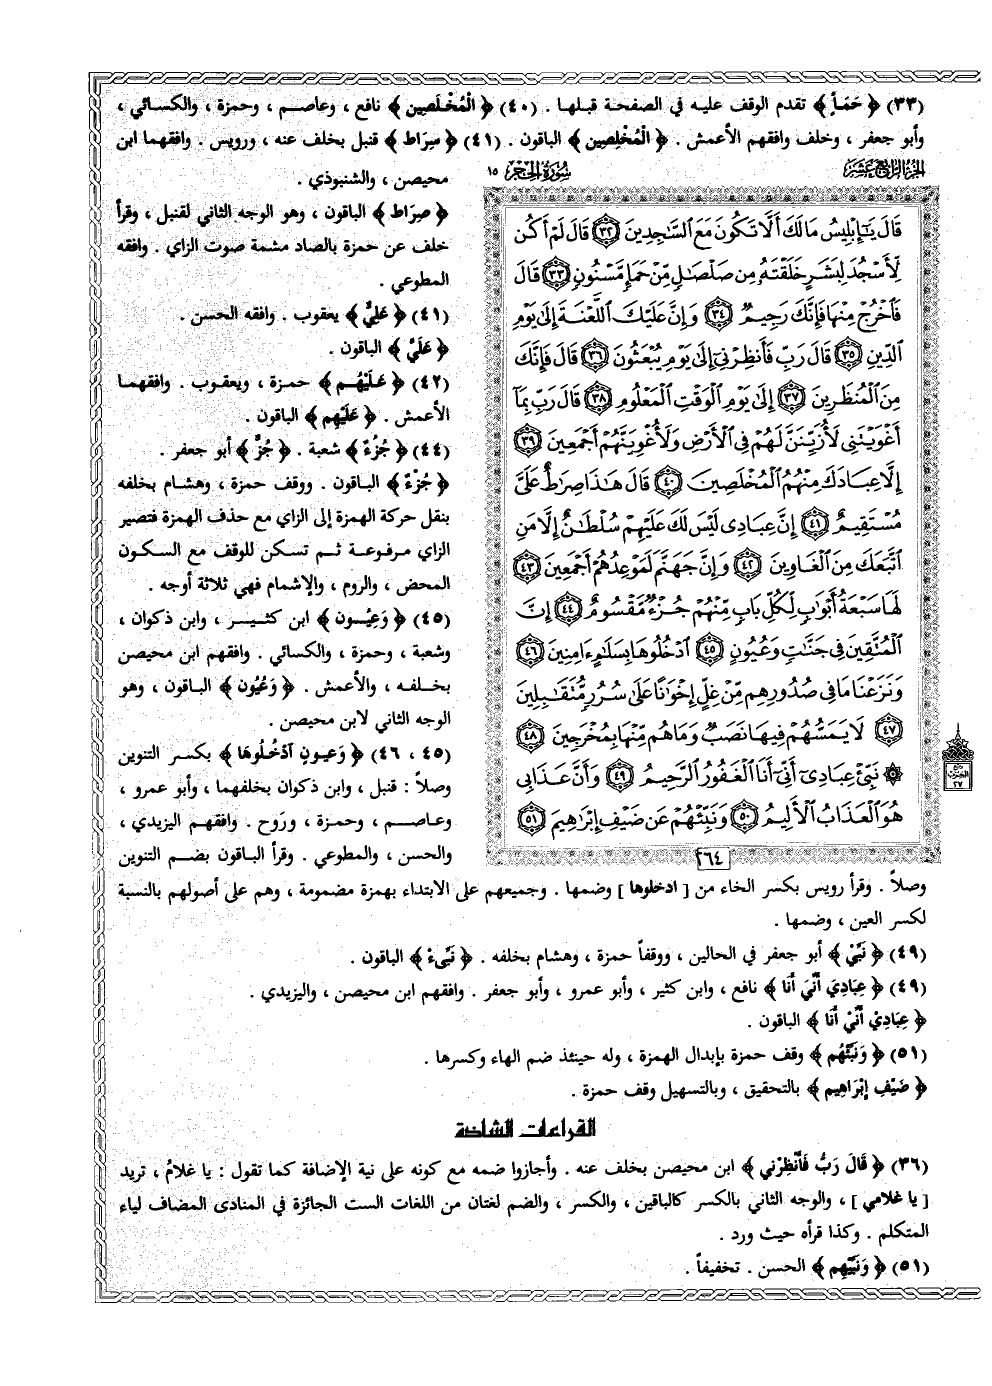 (٣٣) ﴿ حَمَأٍ ﴾ تقدم الوقف عليه في الصفحة قبلها . (٤٠) ﴿ الْمُخْلَصِين ﴾ نافع ، وعاصم ، وحمزة ، والكسائي ،
وأبو جعفر ، وخلف وافقهم الأعمش . ﴿ الْمُخْلِصِين ﴾ الباقون . (٤١) ﴿ سِرَاط ﴾ قنبل بخلف عنه ، ورويس . وافقهما ابن
محيصن ، والشنبوذي .
﴿ صِرَاط ﴾ الباقون ، وهو الوجه الثاني لقنبل ، وقرأ
خلف عن حمزة بالصاد مشمة صوت الزاي . وافقه
المطوعي .
(٤١) ﴿ عَلِيٌّ ﴾ يعقوب . وافقه الحسن .
﴿ عَلَيَّ ﴾ الباقون .
(٤٢) ﴿ عَلَيْهُم ﴾ حمزة ، ويعقوب . وافقهما
الأعمش . ﴿ عَلَيْهِم ﴾ الباقون .
(٤٤) ﴿ جُزُءٌ ﴾ شعبة . ﴿ جُزٌّ ﴾ أبو جعفر .
﴿ جُزْءٌ ﴾ الباقون . ووقف حمزة ، وهشام بخلفه
بنقل حركة الهمزة إلى الزاي مع حذف الهمزة فتصير
الزاي مرفوعة ثم تسكن للوقف مع السكون
المحض ، والروم ، والإشمام فهي ثلاثة أوجه .
(٤٥) ﴿ وَعِيُون ﴾ ابن كثير ، وابن ذكوان ،
وشعبة ، وحمزة ، والكسائي . وافقهم ابن محيصن
بخلفه ، والأعمش . ﴿ وَعُيُون ﴾ الباقون ، وهو
الوجه الثاني لابن محيصن .
(٤٥ ، ٤٦) ﴿ وَعيونٍ ادْخُلُوهَا ﴾ بكسر التنوين
وصلاً : قنبل ، وابن ذكوان بخلفهما ، وأبو عمرو ،
وعاصم ، وحمزة ، ورَوح . وافقهم اليزيدي ،
والحسن ، والمطوعي . وقرأ الباقون بضم التنوين
الجزء الرابع عشر
سورة الحجر ١٥
قَالَ يَٰٓإِبْلِيسُ مَا لَكَ أَلَّا تَكُونَ مَعَ ٱلسَّٰجِدِينَ ٣٢ قَالَ لَمْ أَكُن
لِّأَسْجُدَ لِبَشَرٍ خَلَقْتَهُۥ مِن صَلْصَٰلٍ مِّنْ حَمَإٍ مَّسْنُونٍ ٣٣ قَالَ
فَٱخْرُجْ مِنْهَا فَإِنَّكَ رَجِيمٌ ٣٤ وَإِنَّ عَلَيْكَ ٱللَّعْنَةَ إِلَىٰ يَوْمِ
ٱلدِّينِ ٣٥ قَالَ رَبِّ فَأَنظِرْنِىٓ إِلَىٰ يَوْمِ يُبْعَثُونَ ٣٦ قَالَ فَإِنَّكَ
مِنَ ٱلْمُنظَرِينَ ٣٧ إِلَىٰ يَوْمِ ٱلْوَقْتِ ٱلْمَعْلُومِ ٣٨ قَالَ رَبِّ بِمَآ
أَغْوَيْتَنِى لَأُزَيِّنَنَّ لَهُمْ فِى ٱلْأَرْضِ وَلَأُغْوِيَنَّهُمْ أَجْمَعِينَ ٣٩
إِلَّا عِبَادَكَ مِنْهُمُ ٱلْمُخْلَصِينَ ٤٠ قَالَ هَٰذَا صِرَٰطٌ عَلَىَّ
مُسْتَقِيمٌ ٤١ إِنَّ عِبَادِى لَيْسَ لَكَ عَلَيْهِمْ سُلْطَٰنٌ إِلَّا مَنِ
ٱتَّبَعَكَ مِنَ ٱلْغَاوِينَ ٤٢ وَإِنَّ جَهَنَّمَ لَمَوْعِدُهُمْ أَجْمَعِينَ ٤٣
لَهَا سَبْعَةُ أَبْوَٰبٍ لِّكُلِّ بَابٍ مِّنْهُمْ جُزْءٌ مَّقْسُومٌ ٤٤ إِنَّ
ٱلْمُتَّقِينَ فِى جَنَّٰتٍ وَعُيُونٍ ٤٥ ٱدْخُلُوهَا بِسَلَٰمٍ ءَامِنِينَ ٤٦
وَنَزَعْنَا مَا فِى صُدُورِهِم مِّنْ غِلٍّ إِخْوَٰنًا عَلَىٰ سُرُرٍ مُّتَقَٰبِلِينَ
٤٧ لَا يَمَسُّهُمْ فِيهَا نَصَبٌ وَمَا هُم مِّنْهَا بِمُخْرَجِينَ ٤٨
۞ نَبِّئْ عِبَادِىٓ أَنِّىٓ أَنَا ٱلْغَفُورُ ٱلرَّحِيمُ ٤٩ وَأَنَّ عَذَابِى
هُوَ ٱلْعَذَابُ ٱلْأَلِيمُ ٥٠ وَنَبِّئْهُمْ عَن ضَيْفِ إِبْرَٰهِيمَ ٥١
٢٦٤
٢٧
وصلاً . وقرأ رويس بكسر الخاء من [ ادخلوها ] وضمها . وجميعهم على الابتداء بهمزة مضمومة ، وهم على أصولهم بالنسبة
لكسر العين ، وضمها .
(٤٩) ﴿ نَبِّيْ ﴾ أبو جعفر في الحالين ، ووقفاً حمزة ، وهشام بخلفه . ﴿ نَبِّىءْ ﴾ الباقون .
(٤٩) ﴿ عِبَادِيَ أَنِّيَ أَنَا ﴾ نافع ، وابن كثير ، وأبو عمرو ، وأبو جعفر . وافقهم ابن محيصن ، واليزيدي .
﴿ عِبَادِيْ أَنِّيْ أَنَا ﴾ الباقون .
(٥١) ﴿ وَنَبِّئْهُم ﴾ وقف حمزة بإبدال الهمزة ، وله حينئذ ضم الهاء وكسرها .
﴿ ضَيْفِ إِبْرَاهِيم ﴾ بالتحقيق ، وبالتسهيل وقف حمزة .
القراءات الشاذة
(٣٦) ﴿ قَالَ رَبُّ فَأَنْظِرْنِي ﴾ ابن محيصن بخلف عنه . وأجازوا ضمه مع كونه على نية الإضافة كما تقول : يا غلامُ ، تريد
[ يا غلامي ] ، والوجه الثاني بالكسر كالباقين ، والكسر ، والضم لغتان من اللغات الست الجائزة في المنادى المضاف لياء
المتكلم . وكذا قرأه حيث ورد .
(٥١) ﴿ وَنَبِّيهِم ﴾ الحسن . تخفيفاً .